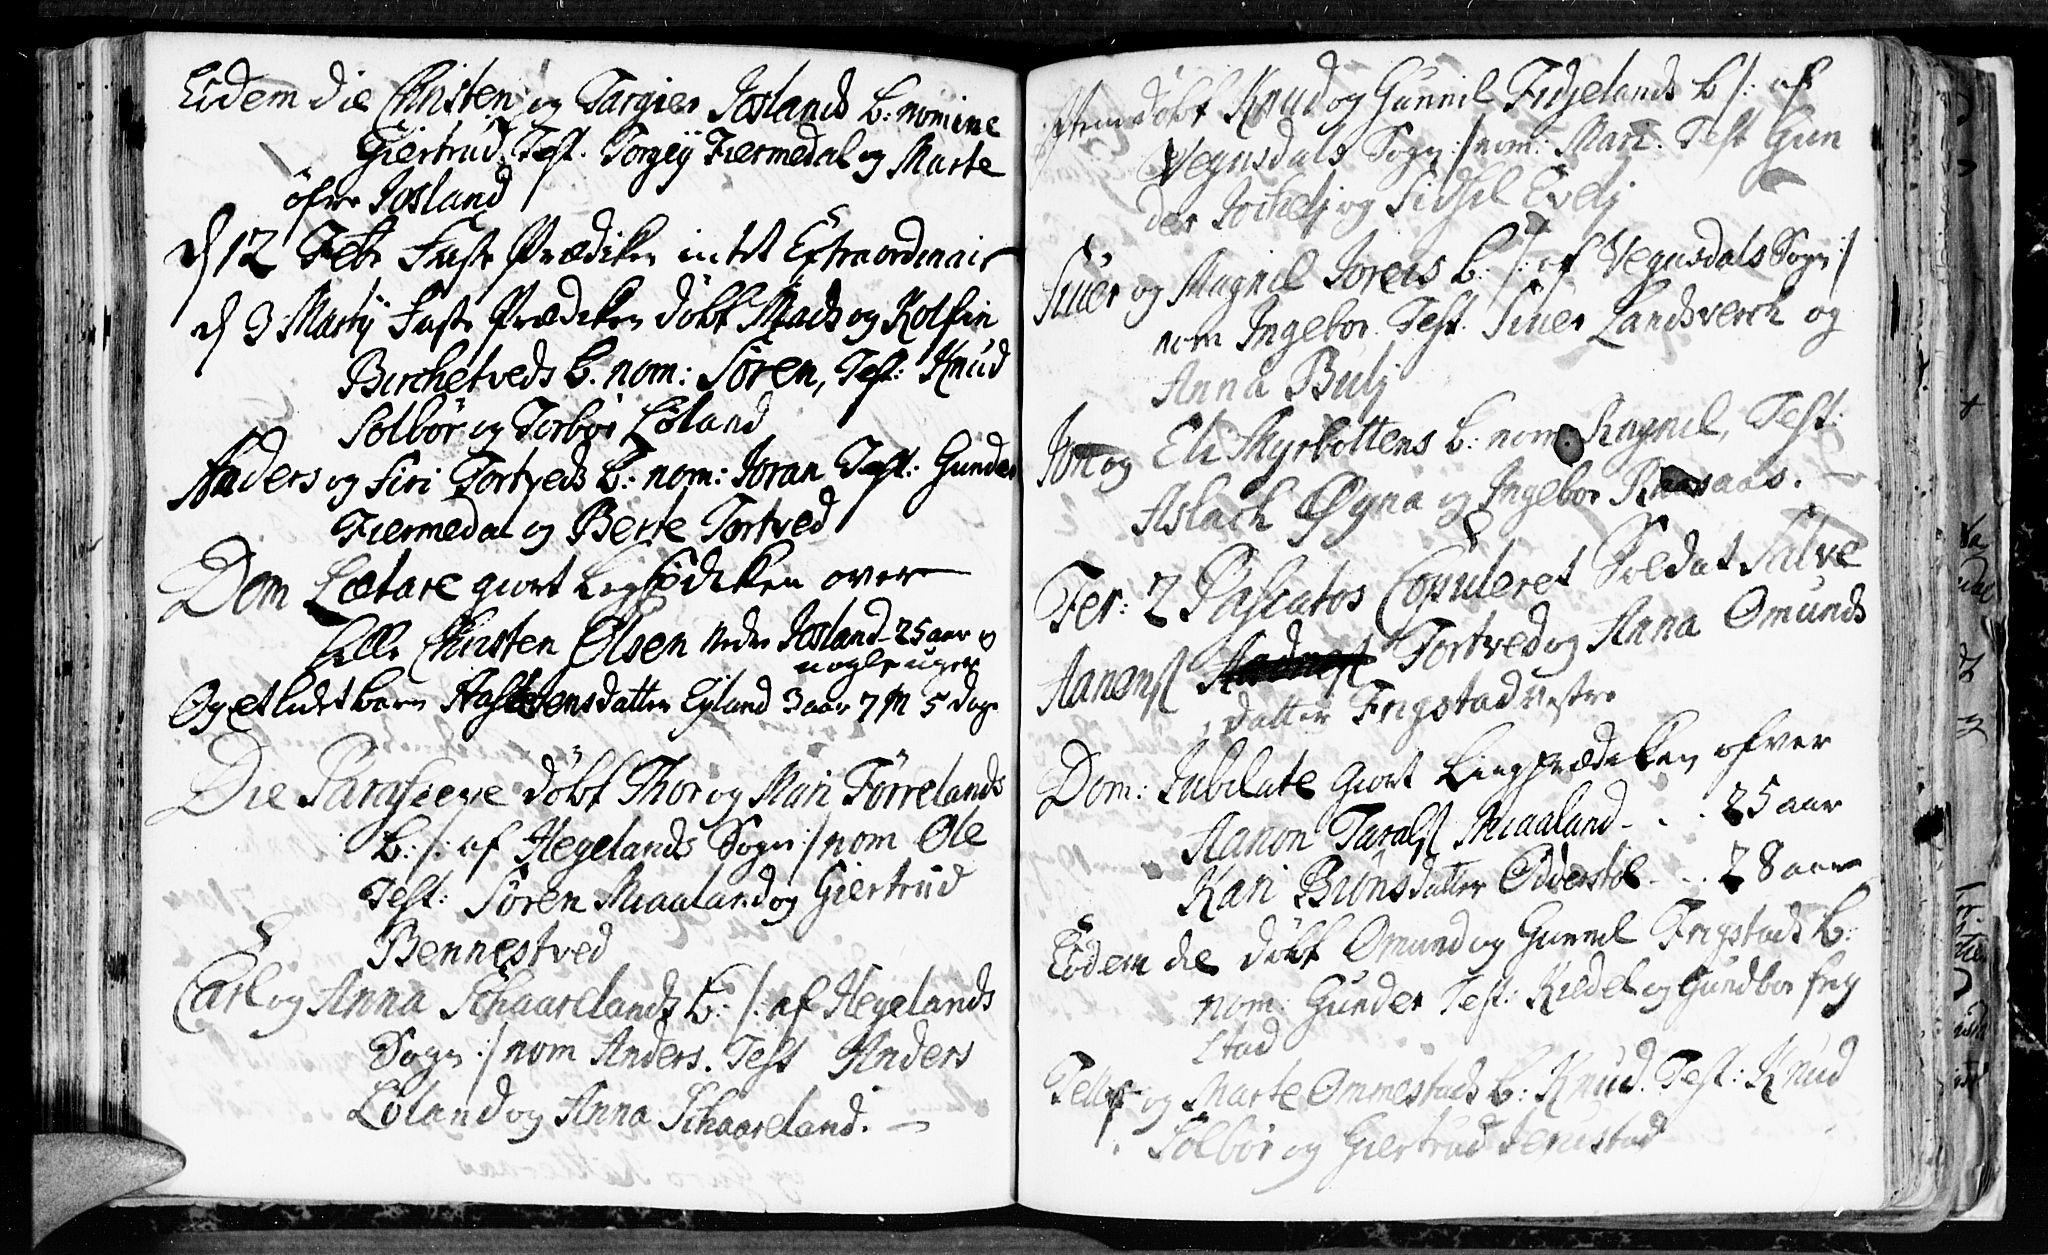 Eodem die Christen og Targier Joslands b: nomine
Giertrud, Test. Torgiy Fiermedal og Marte
öfre Josland
d 12 Febr Faste Prædiken intet Extraordinair
d 3 Martij Faste Prædiken döbt Mads og Kolfin
Birchetveds b. nom: Sören, Test: Knud
Solbör og Torbör Löland
Anders og Siri Tortveds b: nom: Joran Test: Gunder
Fiermedal og Berte Tortved
Dom Lætare giort Ligprædiken over
Christen Olsen nedre Josland 25 aar og
nogle uger
Og et lidet barn datter Eyland 3 aar 7 M 5 dage
Die Parasceve döbt Thor og Mari Förrelands
b: /: af Hegelands Sogn :/ nom Ole
Test: Sören Miaaland og Giertrud
Bennestved
Carl og Anna Schaarelands b: /: af Hegelands
Sogn :/ nom Anders. Test Anders
Löland og Anna Schaareland.
döbt Knud og Gunnil Fidjelands b /: af
Vegusdals Sogn :/ nom: Mari. Test Gun
der og Sidsel Evelj
Siuer og Magnil Joreis b: /: af Vegusdals Sogn :/
nom Ingebor. Test. Siuer Landsverch og
Anna Bulj
Jon og Eli Myrbottens b: nom: Ragnil, Test:
Aslach Øyna og Ingebor
Fer: 2 Paschatos Copuleret Soldat Salve
Aanensß Tortved og Anna Omunds
datter Frigstad vestre
Dom: Jubilate giort Liigprædiken ofver
Aanon Taralß Miaaland - . . 25 aar
Kari datter Odderstöl - . . 28 aar
Eodem die döbt Omund og Gunnil Frigstads b:
nom: Gunder Test: Kiedel og Gundbor Frig
stad
Tellef og Marte Ommestads b: Knud. Test: Knud
Solbör og Giertrud Jerustad